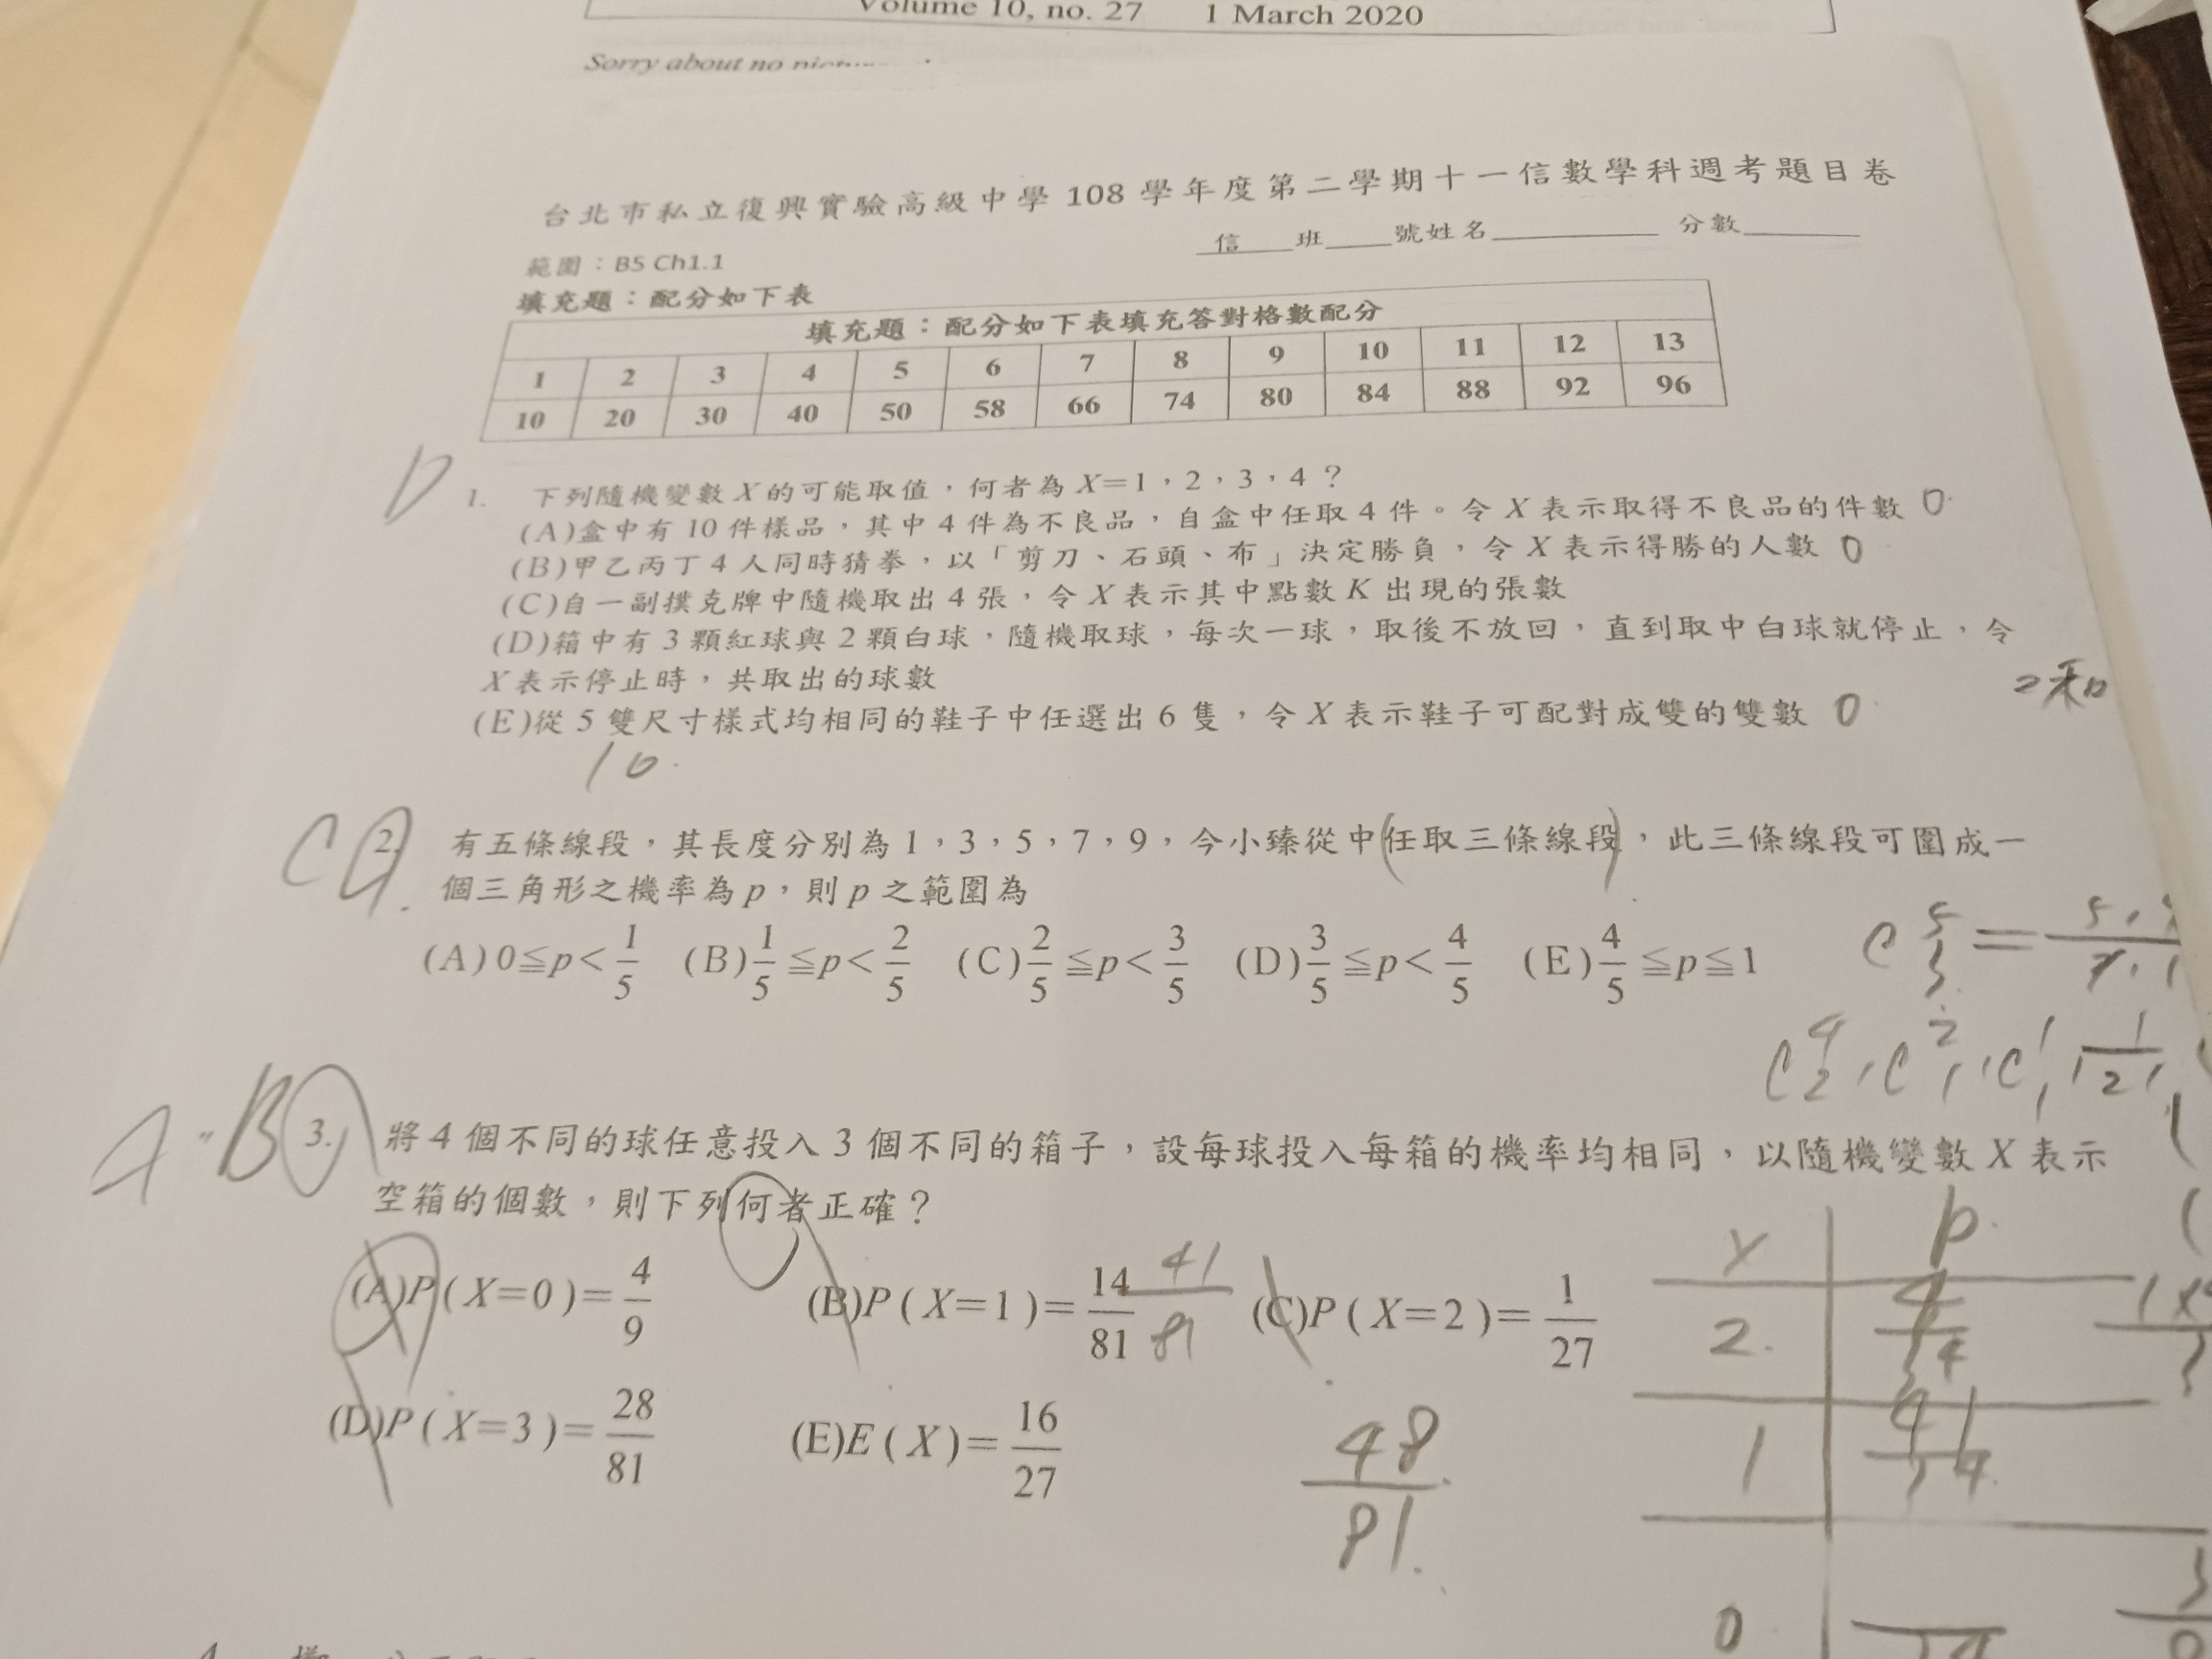 Volume 10, no. 27 1 March 2020
Sorry about no
台北市私立復興實驗高級中學 108 學年度第二學期十一信數學科週考題目卷
範圍：B5 Ch1.1 信 班 號姓名 分數
填充題：配分如下表
填充題：配分如下表填充答對格數配分
1 2 3 4 5 6 7 8 9 10 11 12 13
10 20 30 40 50 58 66 74 80 84 88 92 96
D 1. 下列隨機變數 X 的可能取值，何者為 X=1，2，3，4？
(A)盒中有 10 件樣品，其中 4 件為不良品，自盒中任取 4 件。令 X 表示取得不良品的件數 0
(B)甲乙丙丁 4 人同時猜拳，以「剪刀、石頭、布」決定勝負，令 X 表示得勝的人數 0
(C)自一副撲克牌中隨機取出 4 張，令 X 表示其中點數 K 出現的張數
(D)箱中有 3 顆紅球與 2 顆白球，隨機取球，每次一球，取後不放回，直到取中白球就停止，令
X 表示停止時，共取出的球數
(E)從 5 雙尺寸樣式均相同的鞋子中任選出 6 隻，令 X 表示鞋子可配對成雙的雙數 0
10
C 2. 有五條線段，其長度分別為 1，3，5，7，9，今小臻從中任取三條線段，此三條線段可圍成一
個三角形之機率為 p，則 p 之範圍為
(A) 0≦p<1/5 (B) 1/5≦p<2/5 (C) 2/5≦p<3/5 (D) 3/5≦p<4/5 (E) 4/5≦p≦1
A B 3. 將 4 個不同的球任意投入 3 個不同的箱子，設每球投入每箱的機率均相同，以隨機變數 X 表示
空箱的個數，則下列何者正確？
(A)P(X=0)=4/9 (B)P(X=1)=14/81 41/81 (C)P(X=2)=1/27
(D)P(X=3)=28/81 (E)E(X)=16/27
48/81.